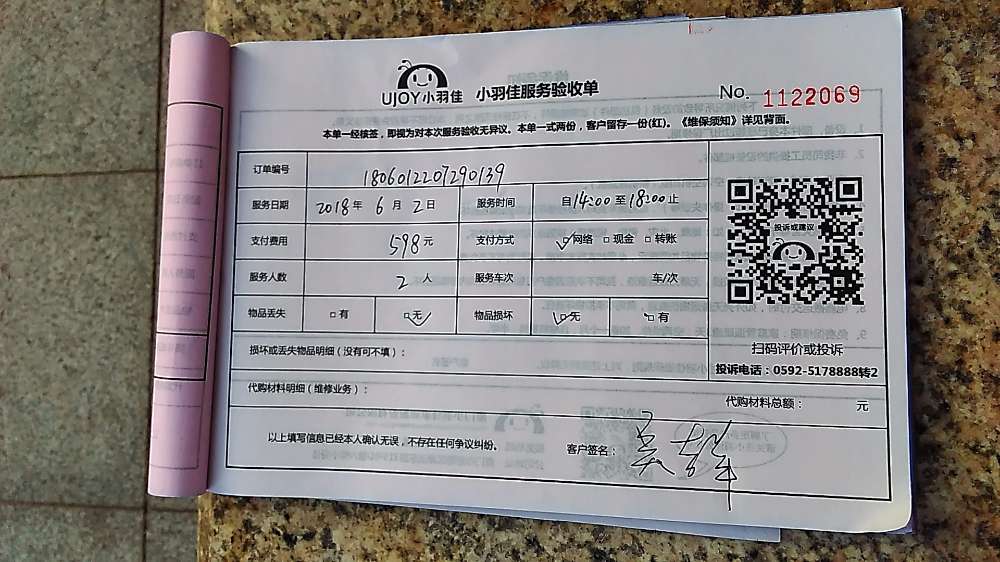 UJOY小羽佳 小羽佳服务验收单 No. 1122069
本单一经核签，即视为对本次服务验收无异议。本单一式两份，客户留存一份(红)。《维保须知》详见背面。
订单编号 1806012207290139
服务日期 2018年 6月 2日 服务时间 自14:00至18:00止
支付费用 598元 支付方式 网络 现金 转账
服务人数 2人 服务车次 车/次
物品丢失 有 无 物品损坏 无 有
投诉或建议
扫码评价或投诉
投诉电话：0592-5178888转2
损坏或丢失物品明细（没有可不填）：
代购材料明细（维修业务）：
代购材料总额： 元
以上填写信息已经本人确认无误，不存在任何争议纠纷。 客户签名：